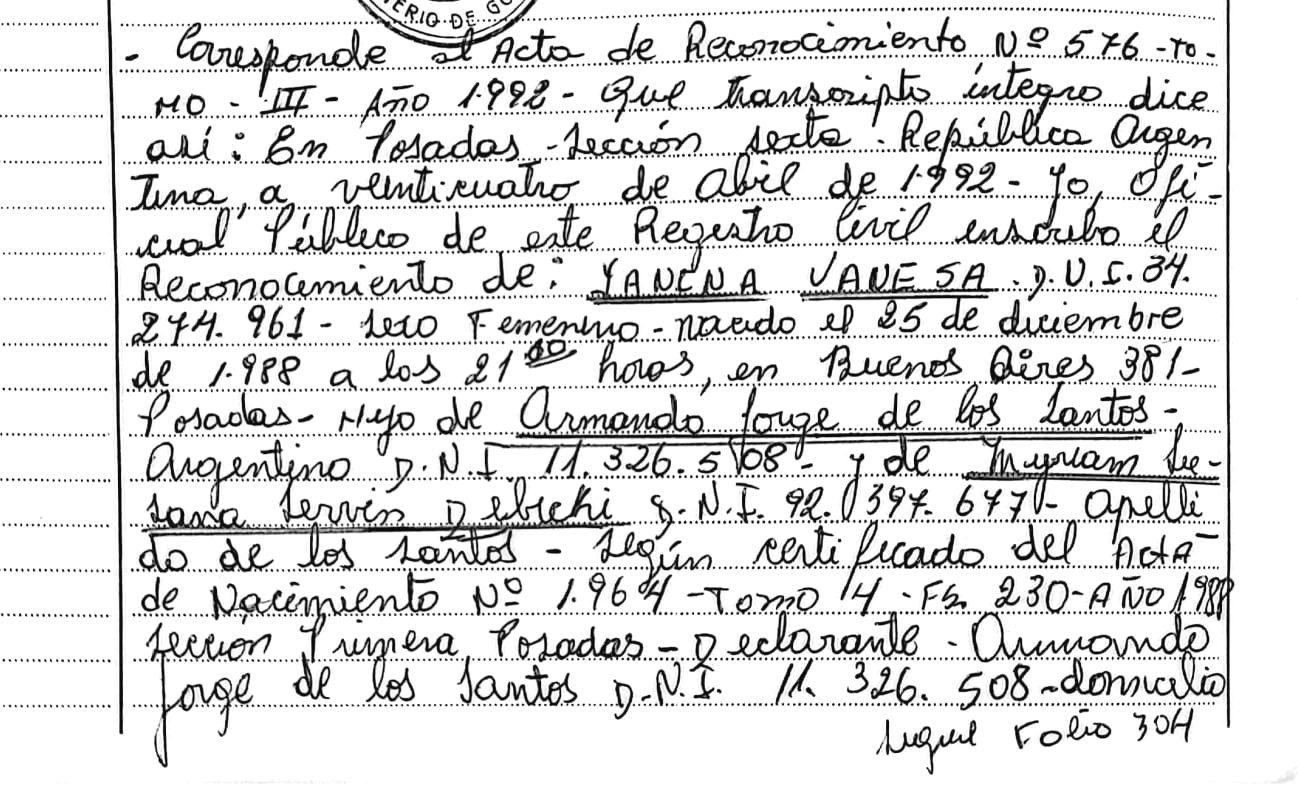 ERIO·DE GO
- Coresponde al Acta de Reconocimiento Nº 576-TO-
MO - III - Año 1.992 - Que transcripto íntegro dice
así: En Posadas - Sección sexta. República Argen
tina, a, veinticuatro de abril de 1992 - Yo, Ofi-
cial Público de este Registro Civil enscribo el
Reconocimiento de: YANINA VANESA . D.N.I. 34.
274. 961 - sexo Femenino - nacido el 25 de diciembre
de 1.988 a los 21 00 horas, en Buenos Aires 381-
Posadas - Hijo de Armando Jorge de los Santos -
Argentino D.N.I. 11.326.508 - y de Myriam Su-
sana Servin Debicki D.N.I. 92.397.677 - apelli
do de los Santos - según certificado del Acta
de Nacimiento Nº 1.964 - TOMO 4 - Fs. 230 - AÑO 1988
Sección Primera Posadas - Declarante - Armando
Jorge de los Santos D.N.I. 11. 326. 508 - domicilio
sigue Folio 304